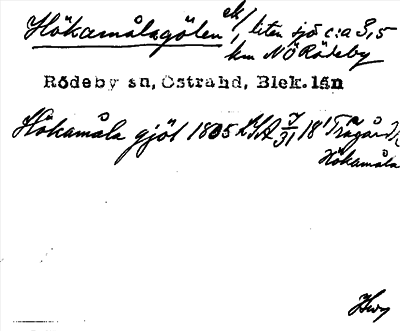 Hökamålagölen ek/, liten sjö c:a 3,5
km NÖ Rödeby
Rödeby sn, Östra hd, Blek. län
Hökamåla gjöl 1805 LSA 7/31 18' Trägård,
Hökamåla